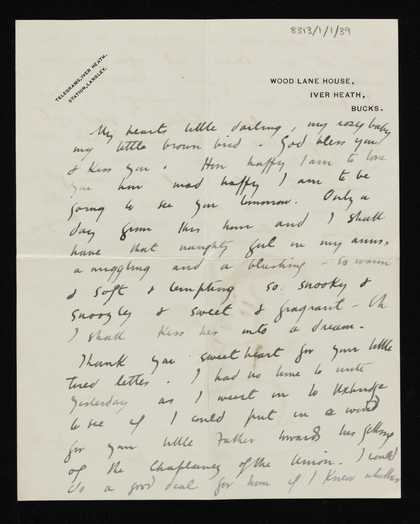 8313/1/1/39
TELEGRAMS, IVER HEATH.
STATION, LANGLEY.
WOOD LANE HOUSE,
IVER HEATH,
BUCKS.
My hearts little darling, my rosy baby
my little brown bird. God bless you
& kiss you. How happy I am to love
you how mad happy I am to be
going to see you tomorrow. Only a
day from this hour and I shall
have that naughty girl in my arms.
a niggling and a blushing - so warm
& soft & tempting so snooky &
snoogley & sweet & fragrant - Oh
I shall kiss her into a dream.
Thank you sweetheart for your little
tired letter. I had no time to write
yesterday as I went in to Uxbridge
to see if I could put in a word
for your little Father towards his getting
of the Chaplaincy of the Union. I could
do a good deal for him if I knew whether